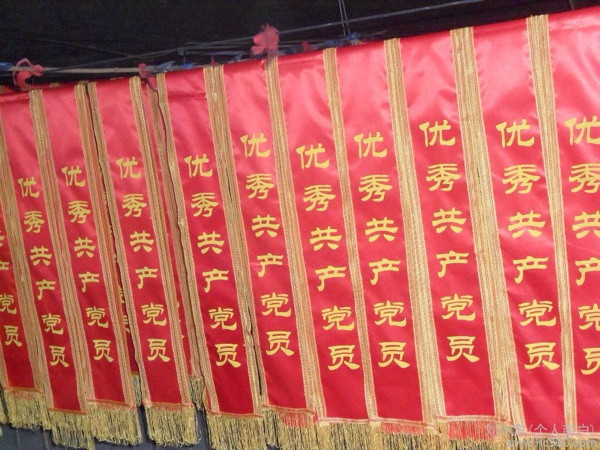 优秀共产党员
优秀共产党员
优秀共产党员
优秀共产党员
优秀共产党员
优秀共产党员
优秀共产党员
优秀共产党员
优秀共产党员
优秀共产党员